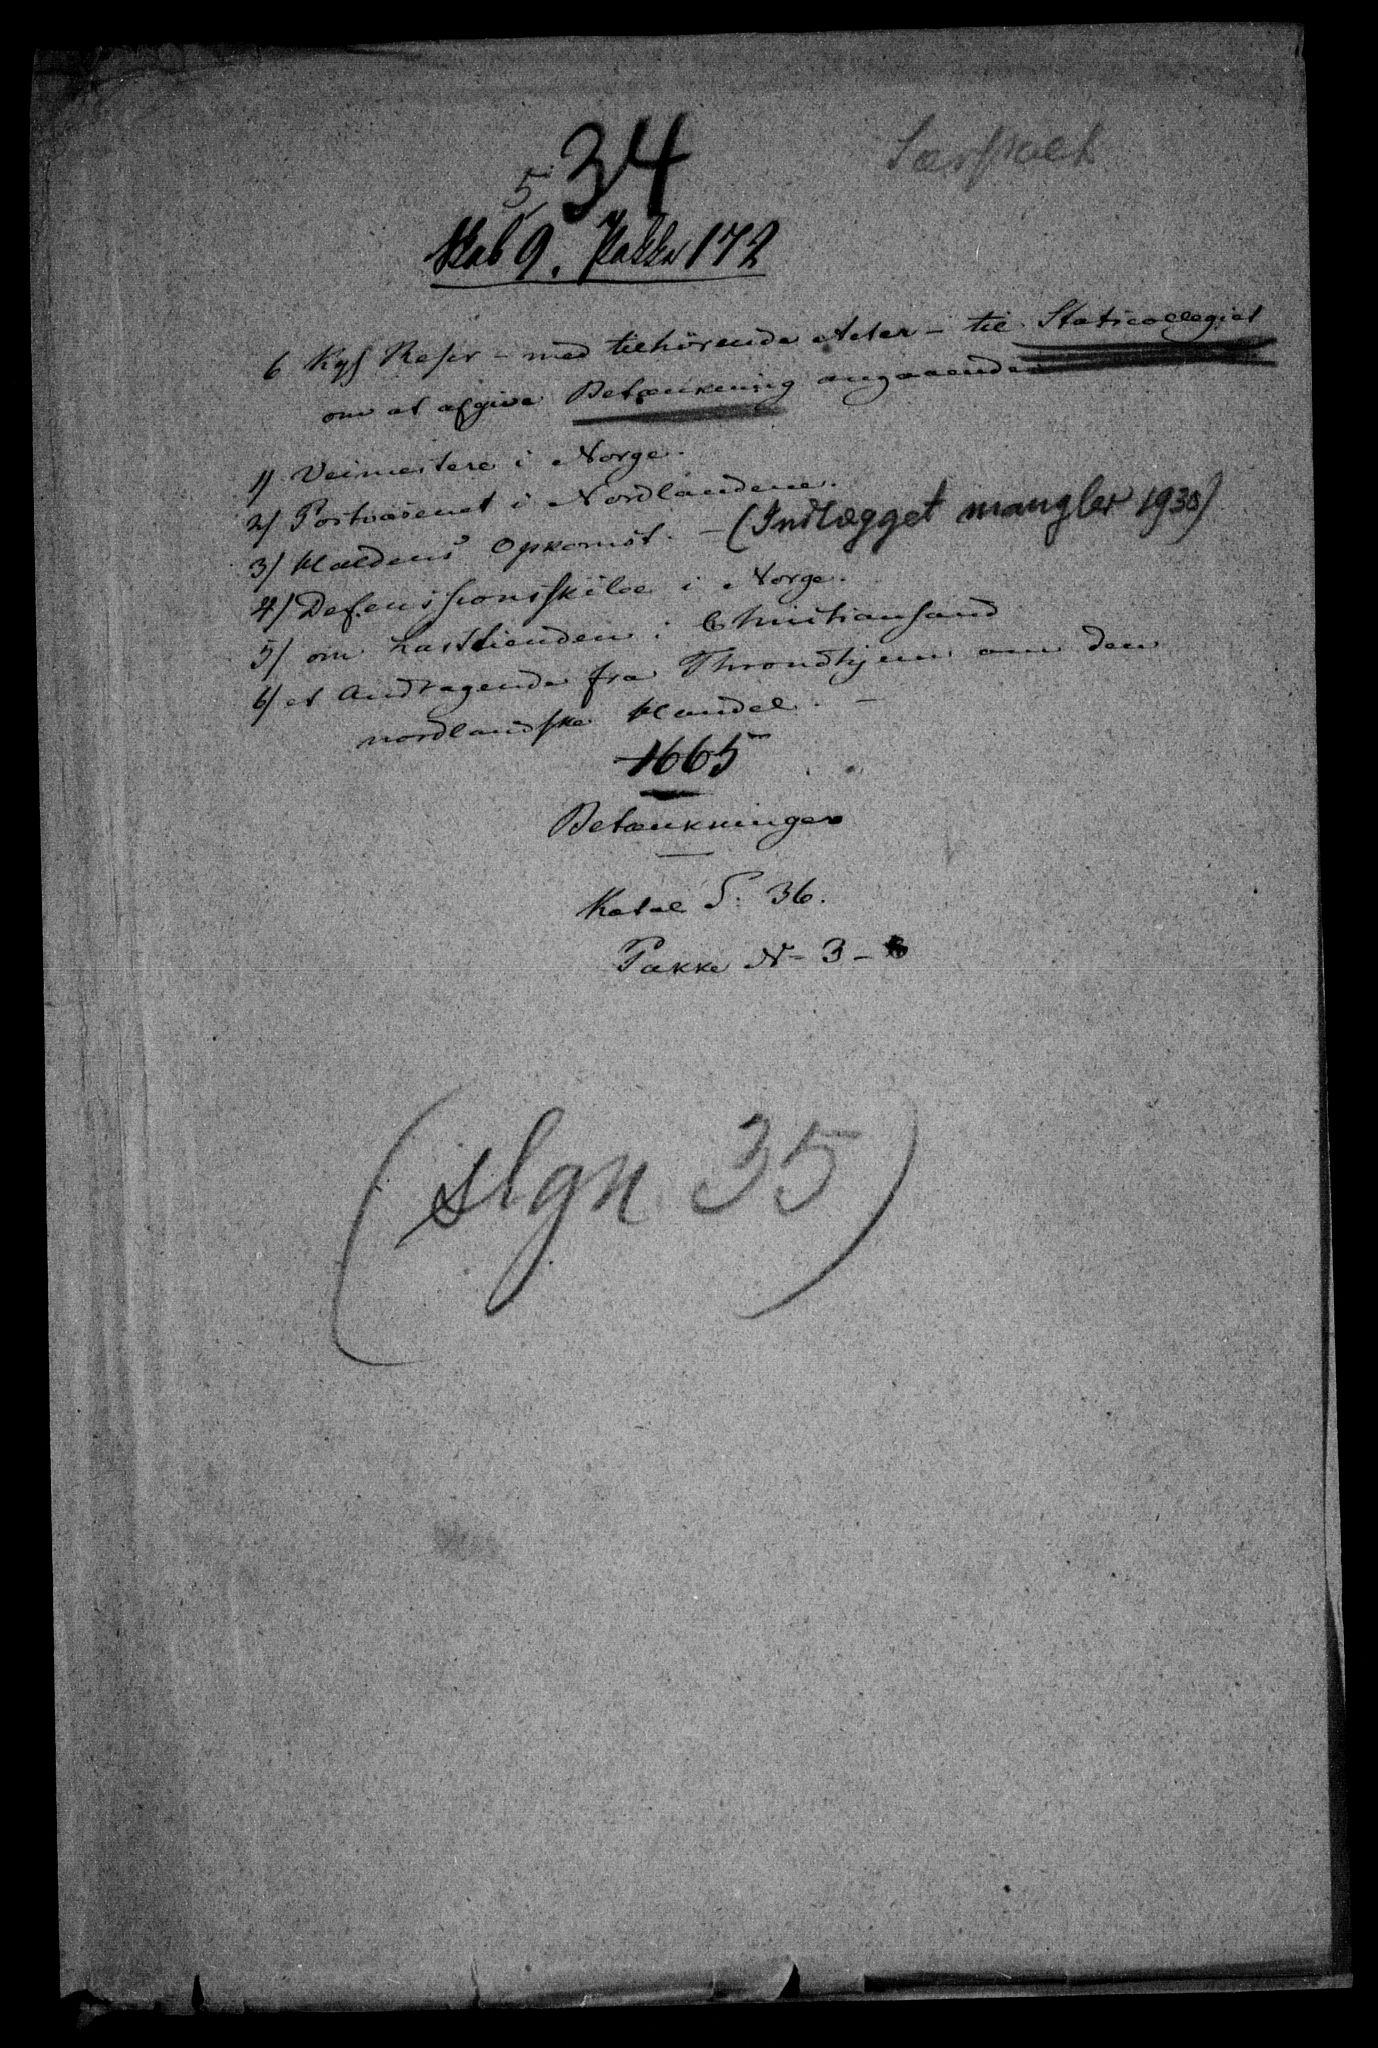 34
5
Skab 9. Pakke 172
6 Kgs Rescr - med tilhörende Acter - til Statscollegiet
om at afgive Betænkning angaaende
1) Veimestere i Norge.
2) Postvæsenet i Nordlandene.
3) Haldens Opkomst. - (Indlægget mangler 1930)
4) Defensionsskibe i Norge.
5) om Lasttienden i Christiansand
6) et Andragende fra Throndhjem om den
nordlandske Handel. -
1665
Betænkninger
Katal S. 36.
Pakke N - 3 -
(slgn 35)